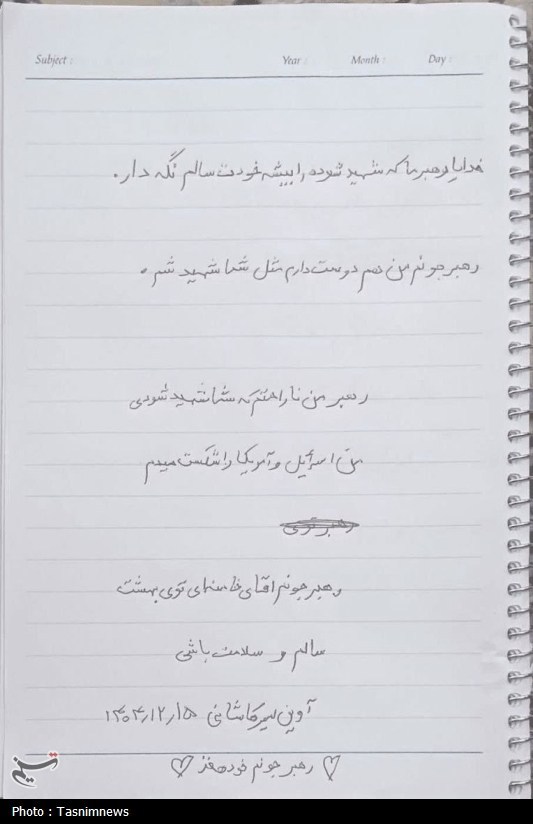 Subject : Year : Month : Day :
خدایا رهبر ما که شهید شوده را بیشه خودت سالم نگه دار .
رهبر جونم من هم دوست دارم مثل شما شهید شم .
رهبر من ناراحتم که شما شهید شودی
من اسرائیل و آمریکا را شکست میدم
رهبر توی
رهبر جونم اقای خامنه‌ای توی بهشت
سالم و سلامت باشی
آوین کاشانی ۱۴۰۴/۱۲/۱۵
♡ رهبر جونم خودحفز ♡
تسنیم
Photo : Tasnimnews